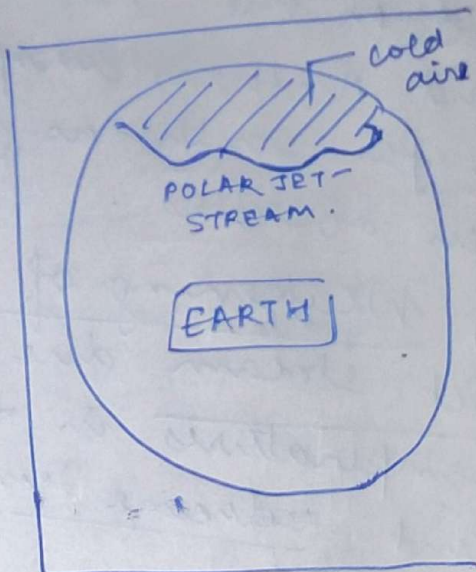 cold
aire
POLAR JET-
STREAM.
EARTH